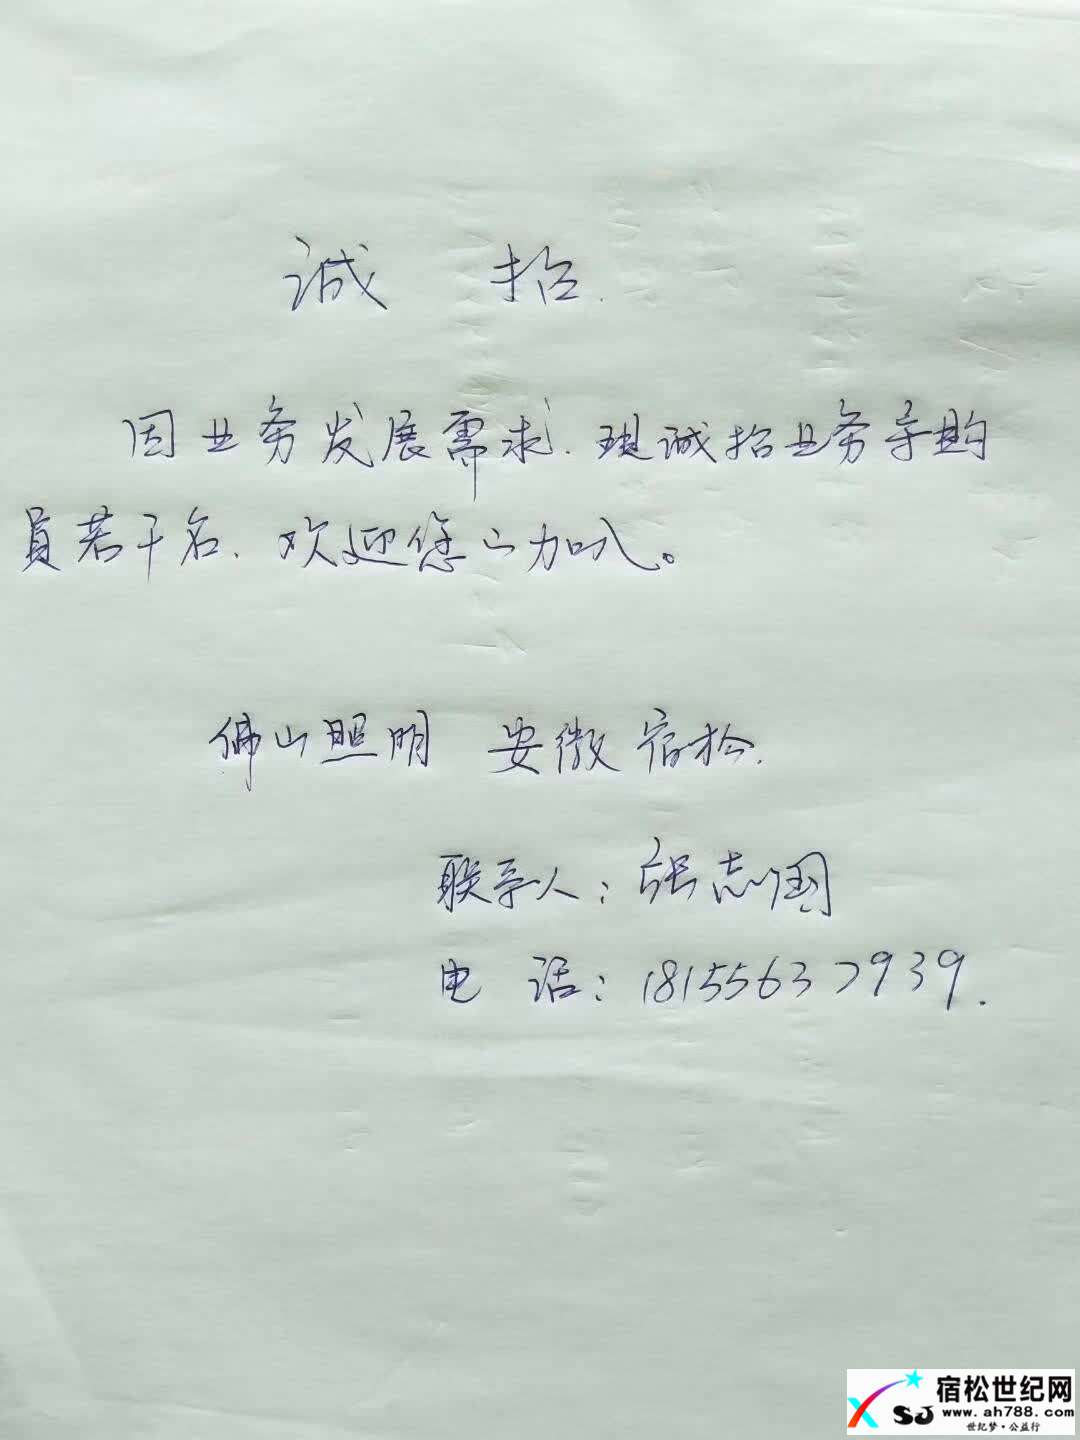 诚 招.
因业务发展需求.现诚招业务导购
员若干名.欢迎您的加入。
佛山照明 安徽宿松.
联系人:张志国
电 话:18155637939.
宿松世纪网
XSJ www.ah788.com
世纪梦·公益行